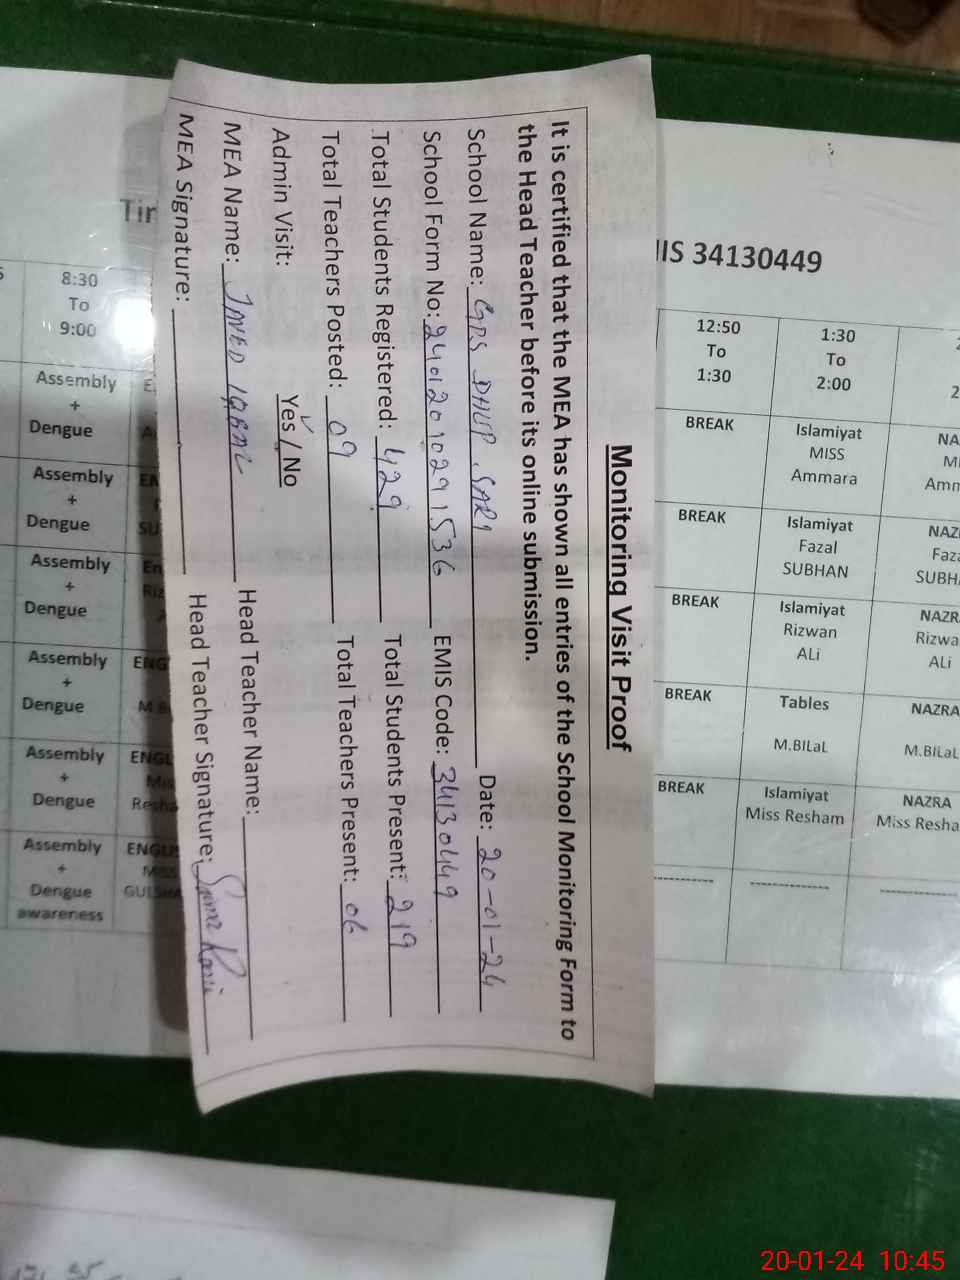 Monitoring Visit Proof
It is certified that the MEA has shown all entries of the School Monitoring Form to
the Head Teacher before its online submission.
School Name: GPS DHUP SARI Date: 20-01-24
School Form No: 24012010291536 EMIS Code: 34130449
Total Students Registered: 429 Total Students Present: 219
Total Teachers Posted: 09 Total Teachers Present: 06
Admin Visit: Yes / No
MEA Name: JAVED IQBAL Head Teacher Name:
MEA Signature: Head Teacher Signature:
IIS 34130449
8:30
To
9:00
12:50
To
1:30
1:30
To
2:00
Assembly
+
Dengue
BREAK
Islamiyat
MISS
Ammara
Assembly
+
Dengue
BREAK
Islamiyat
Fazal
SUBHAN
Assembly
+
Dengue
BREAK
Islamiyat
Rizwan
ALi
Assembly
+
Dengue
BREAK
Tables
M.BILaL
NAZRA
M.BILaL
Assembly
+
Dengue
BREAK
Islamiyat
Miss Resham
NAZRA
Miss Resha
Assembly
+
Dengue
awareness
20-01-24 10:45